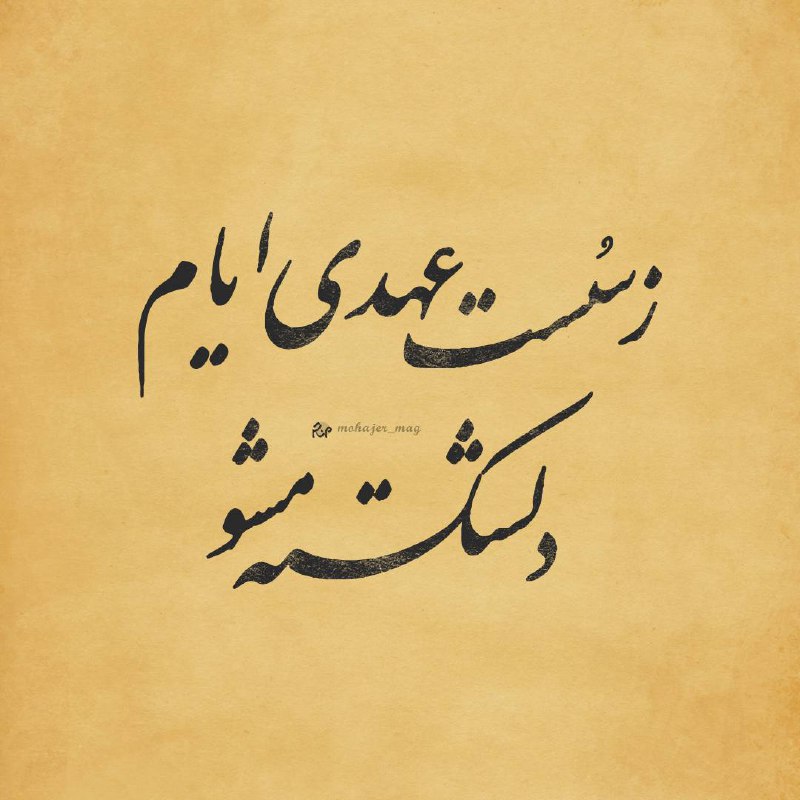 ز سُست عهدی ایام
mohajer_mag
دلشکسته مشو